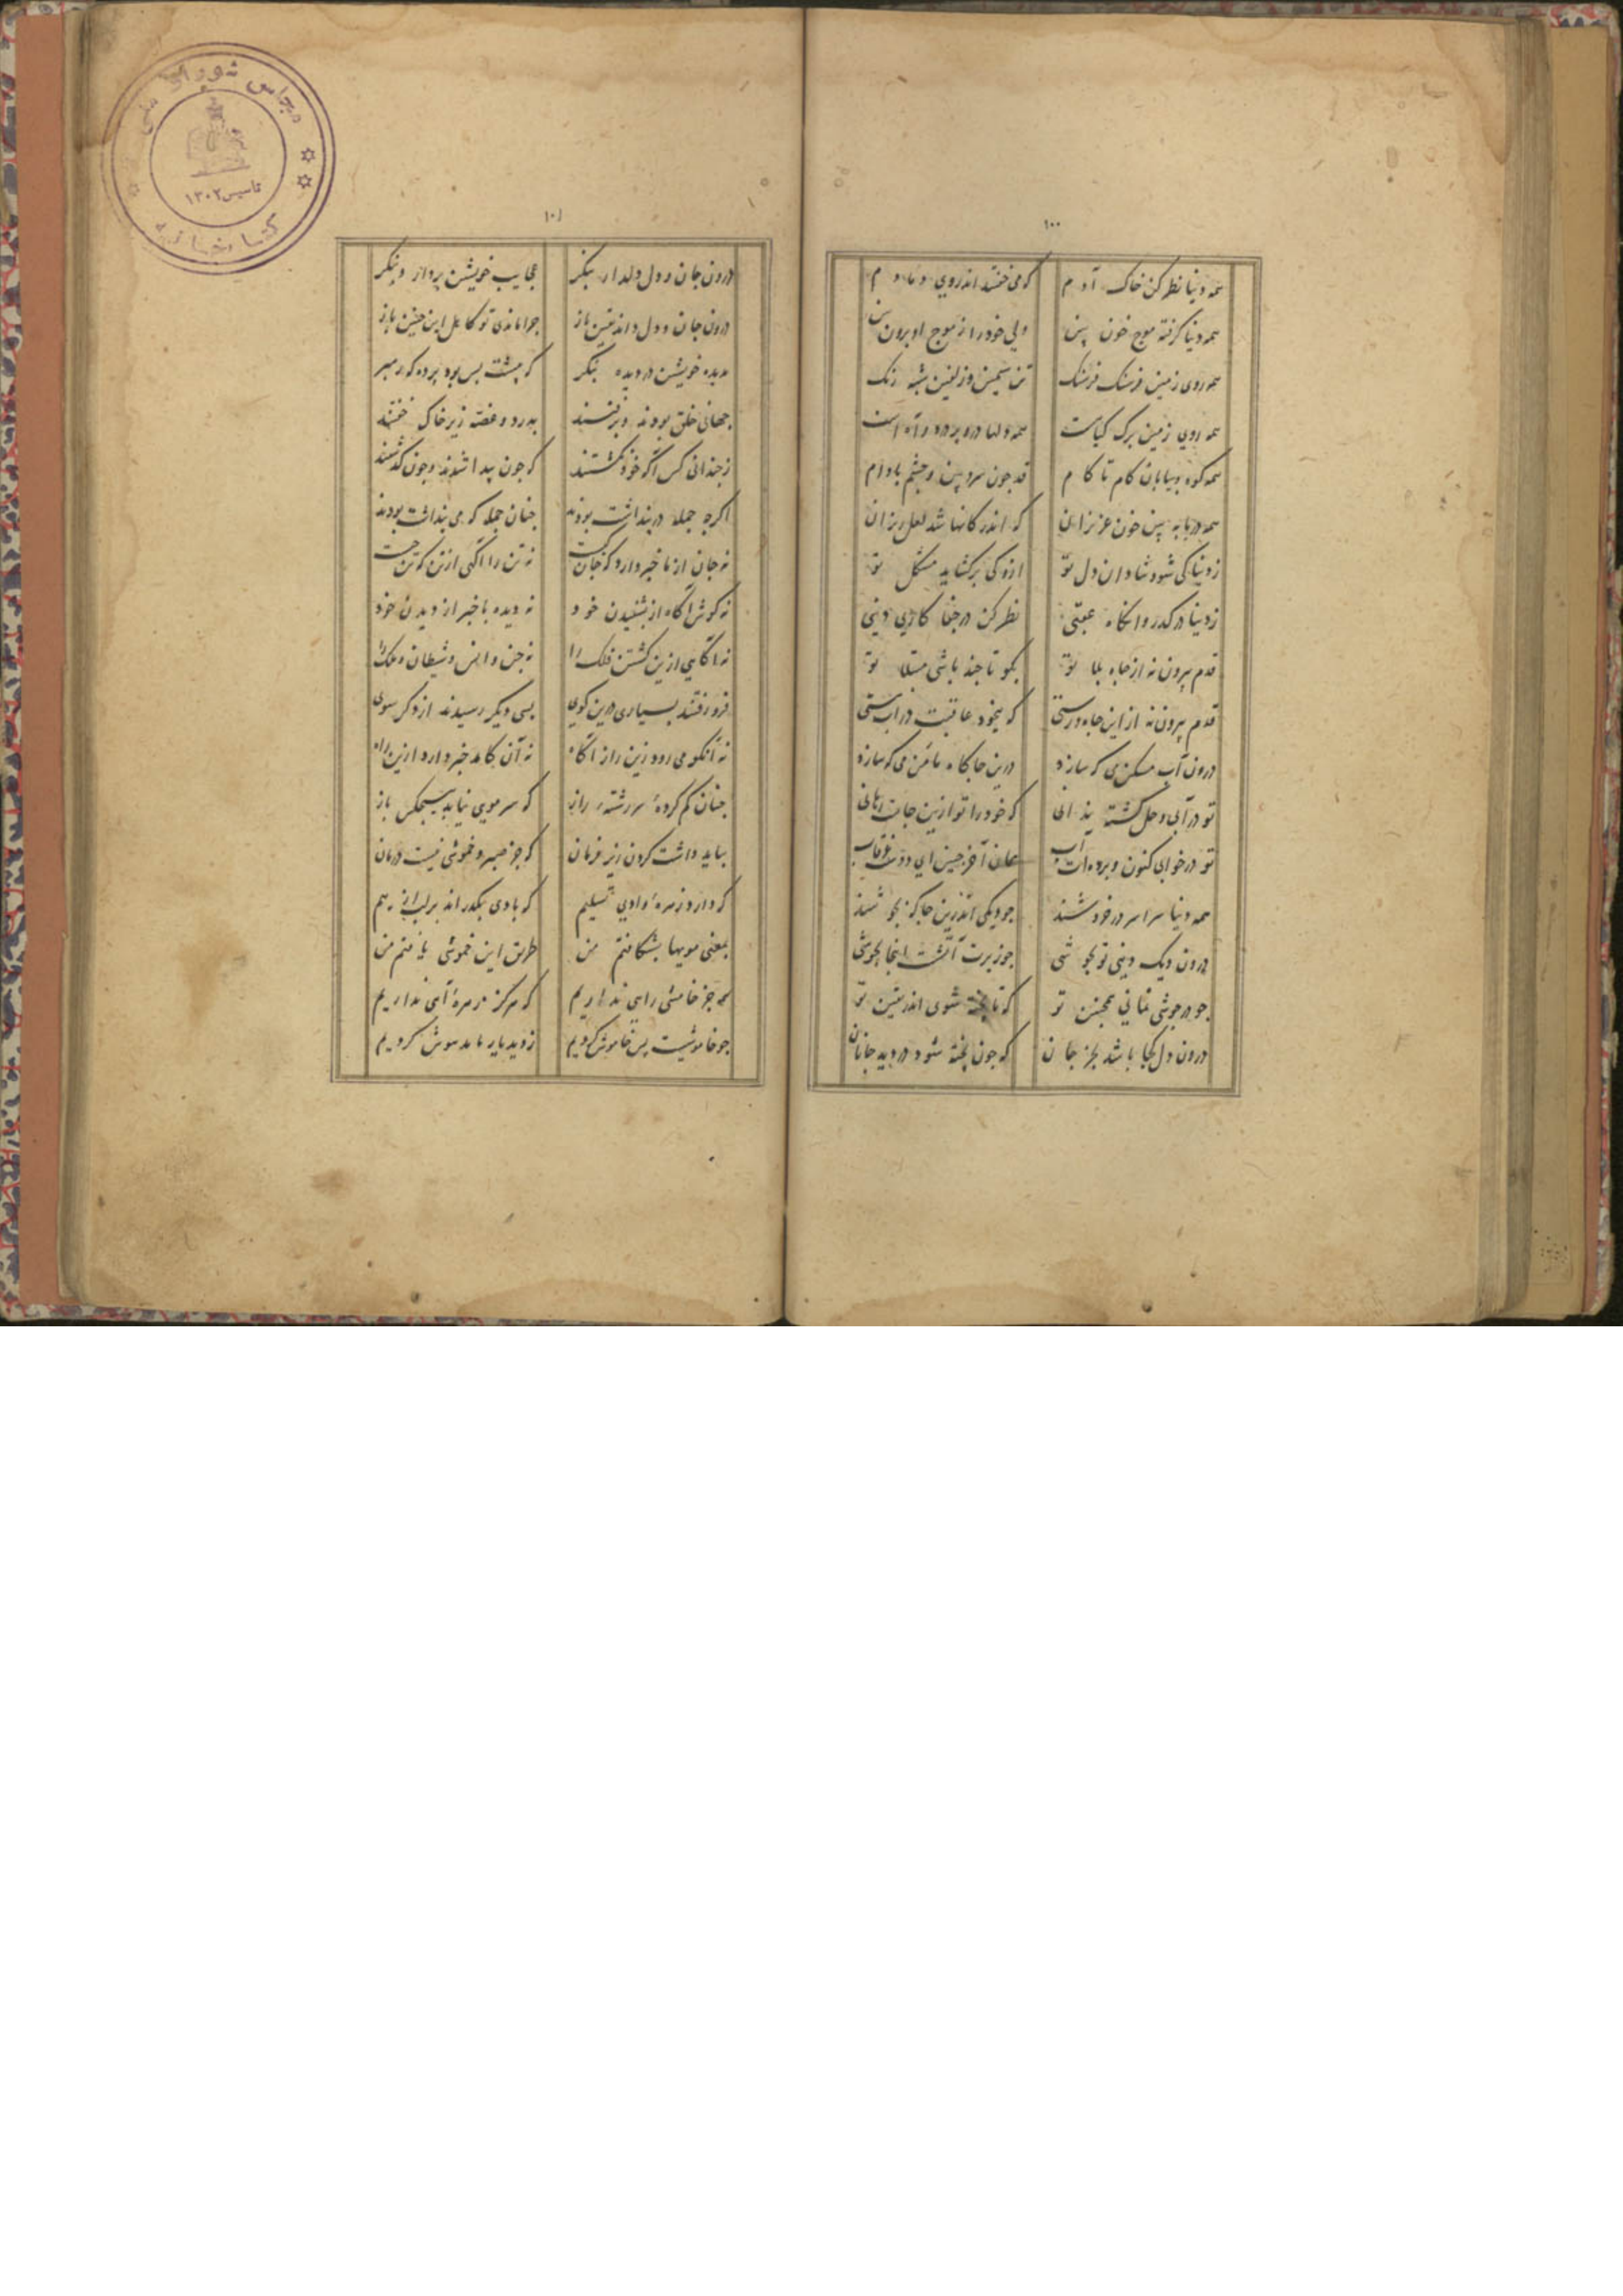 ۱۰۰
همه دنیا نظر کن خاک آدم کمی خفتند اندروی دمادم
همه دنیا گرفته موج خون بین ولی خود را ز موج او برون بین
همه روی زمین فرسنک فرسنک تن سیمین و زلفین شبه رنک
همه روی زمین برک کیاست همه دلها درو پر درد و آه است
همه کوه و بیابان کام تا کام قد چون سرو بین و چشم بادام
همه دریا به بین خون عزیزان که اندر کانها شد لعل ریزان
ز دنیا کی شود شادان دل تو ازو کی برکشاید مشکل تو
ز دنیا درکذر وانکاه عقبی نظر کن در جفا کاری دنیی
قدم بیرون نه از چاه بلا تو بکو تا چند باشی مبتلا تو
قدم بیرون نه از این چاه و رستی که بیخود عاقبت در آب بستی
درون آب مسکن می که سازد درین جاکاه مأمن می که سازد
تو در آبی و حل کشته ندانی که خود را تو ازین جایت رهانی
تو در خوابی کنون و برده ات آب همان آخر چنین ای دوست غرقاب
همه دنیا سراسر در خروشند چو دیکی اندرین جاکه بجوشند
درون دیک دنیی تو بجوشی چو زیرت آتشت اینجا بجوشی
چو در جوشی نمانی همچنین تو که تا پخته شوی اندر یقین تو
درون دل کجا باشد بجز جان که چون پخته شود در دید جانان
۱۰۱
درون جان و دل دلدار بنکر عجایب خویشتن پرداز و بنکر
درون جان و دل داند یقین باز چرا ماندی تو کاهل این چنین باز
بدیده خویشتن در دیده بنکر که پیشت بس بود پرده کوره مبر
جهانی خلق بودند و برفتند بدرد و غصه زیر خاک خفتند
ز چندانی کس آکه خود نکشتند که چون پیدا شدند و چون کذشتند
اکرچه جمله در پنداشت بودند چنان جمله که می پنداشت بودند
نه جان از ما خبر دارد که جان کیست نه تن را آکهی از تن که تن چیست
نه کوش آکاه از بشنیدن خود نه دیده با خبر از دیدن خود
نه آکاهی ازین کشتن فلک را نه جن و انس و شیطان و ملک را
فرو رفتند بسیاری درین کوی بسی دیکر رسیدند از دکر سوی
نه آنکو می رود زین راز آکاه نه آن کامد خبر دارد ازین راه
چنان کم کردهٔ سررشته راز که سر مویی نیابد هیچکس باز
بباید داشت کردن زیر فرمان که جز صبر و خموشی نیست درمان
که دارد زهرهٔ وادی تسلیم که بادی بکذراند بر لب از بیم
بمعنی مویها بشکافتم من طریق این خموشی یافتم من
همه جز خامشی رایی نداریم که هرکز زهرهٔ آهی نداریم
چو خاموشیست پس خاموش کردیم ز دید یار ما مدهوش کردیم
مجلس شورای ملی
تاسیس ۱۳۰۲
کتابخانه